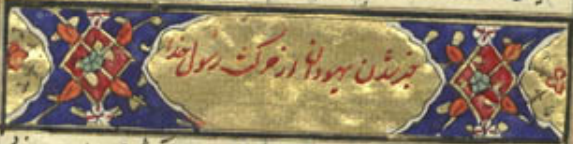 خبر شدن یهودان از حرکت رسول خدا